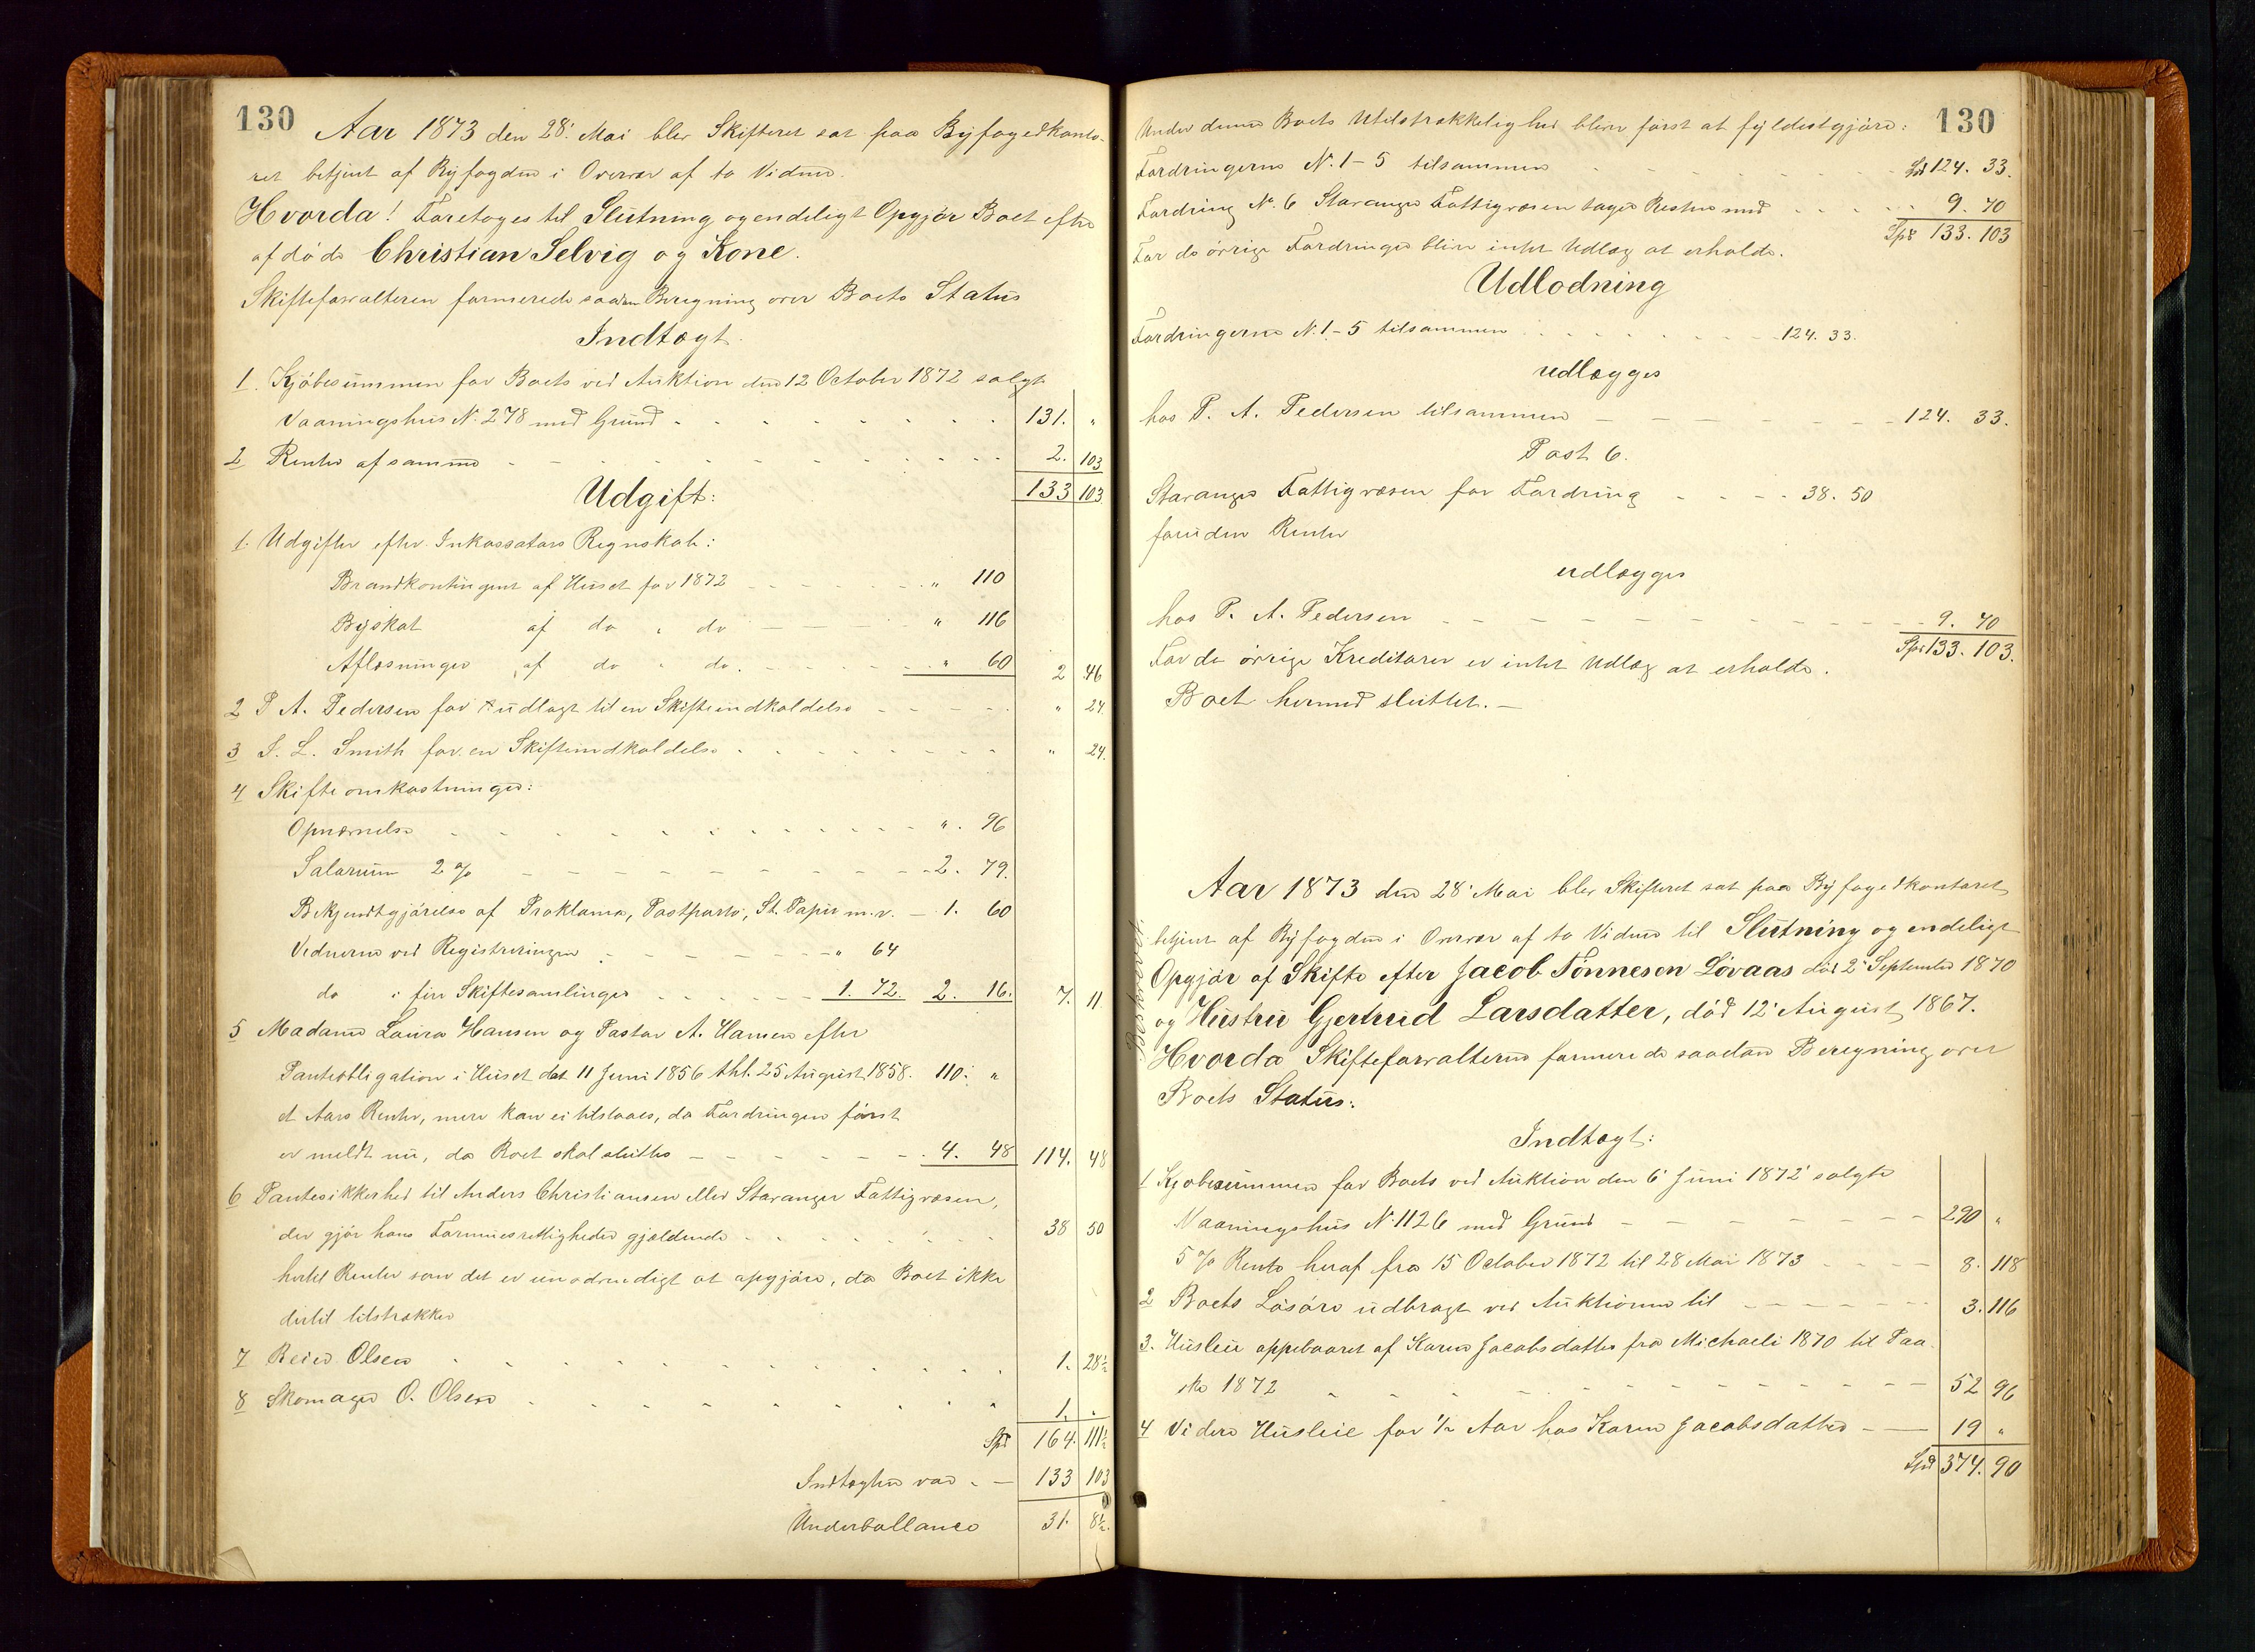 130
Aar 1873 den 28' Mai blev Skifteret sat paa Byfogedkonto-
ret betjent af Byfogden i Overvær af to Vidner.
Hvorda! Foretoges til Slutning og endeligt Opgjør Boet efter
afdøde Christian Selvig og Kone.
Skifteforvalteren formerede saadan Beregning over Boets Status
Indtægt.
1. Kjøbesummen for Boets ved Auktion den 12 October 1872 solgte
Vaaningshus N. 278 med Grund - - - 131. "
2 Renter af samme - - - 2. 103
133 103
Udgift:
1. Udgifter efter Inkassators Regnskab:
Brandkontingent af Huset for 1872 - - - " 110
Byskat af do " do - - - " 116
Afløsninger af do " do. - - - " 60 2 46
2 P A. Pedersen for udlagt til en Skifteindkaldelse - - - " 24.
3 S. L. Smith for en Skifteindkaldelse - - - " 24.
4 Skifteomkostninger:
Opnævnelse - - - ". 96
Salarium 2 % - - - 2. 79.
Bekjendtgjørelse af Proklama, Postporto, St. Papir m. v. - 1. 60
Vidnerne ved Registreringen - - - " 64
do i fire Skiftesamlinger - - - 1. 72. 2. 16. 7. 11
5 Madame Laura Hansen og Pastor A. Hansen efter
Panteobligation i Huset dat 11 Juni 1856 thl. 25 August 1858. 110: "
et Aars Renter, mere kan ei tilstaaes, da Fordringen først
er meldt nu, da Boet skal sluttes - - - 4. 48 114. 48
6 Pantesikkerhed til Anders Christiansen eller Stavanger Fattigvæsen,
der gjør hans Formuesrettigheder gjældende - - - 38 50
hertil Renter som det er unødvendigt at opgjøre, da Boet ikke
dertil tilstrækker
7 Reier Olsen - - - 1. 28½
8 Skomager O. Olsen - - - 1. "
Spd 164. 111½
Indtægten var - - 133 103
Underballance 31. 8½.
130
Under denne Boets Utilstrækkelighed bliver først at fyldestgjøre:
Fordringerne N. 1-5 tilsammen - - - Spd 124. 33.
Fordring N. 6 Stavanger Fattigvæsen tager Resten med - - - 9. 70
Spd 133. 103
For de øvrige Fordringer bliver intet Udlæg at erholde.
Udlodning
Fordringerne N. 1-5 tilsammen - - - 124. 33.
udlægges
hos P. A. Pedersen tilsammen - - - 124. 33.
Post 6.
Stavanger Fattigvæsen for Fordring - - - 38. 50
foruden Renter
udlægges
hos P. A. Pedersen - - - 9. 70
Spd 133. 103.
For de øvrige Kreditorer er intet Udlæg at erholde.
Boet hermed sluttet. -
Aar 1873 den 28' Mai blev Skifteret sat paa Byfogedkontoret
betjent af Byfogden i Overvær af to Vidner til Slutning og endeligt
Opgjør af Skifte efter Jacob Tønnesen Løvaas død 2' September 1870
og Hustru Gjertrud Larsdatter, død 12' August 1867.
Hvorda Skifteforvalteren formerede saadan Beregning over
Boets Status:
Indtægt:
1 Kjøbesummen for Boets ved Auktion den 6' Juni 1872 solgte
Vaaningshus N. 1126 med Grund - - - 290 "
5 % Rente heraf fra 15 October 1872 til 28 Mai 1873 - - - 8. 118
2 Boets Løsøre udbragt ved Auktionen til - - - 3. 116
3. Husleie oppebaaret af Karen Jacobsdatter fra Michaeli 1870 til Paa-
ske 1872 - - - 52 96
4 Videre Husleie for ½ Aar hos Karen Jacobsdatter - - 19 "
Spd 374. 90